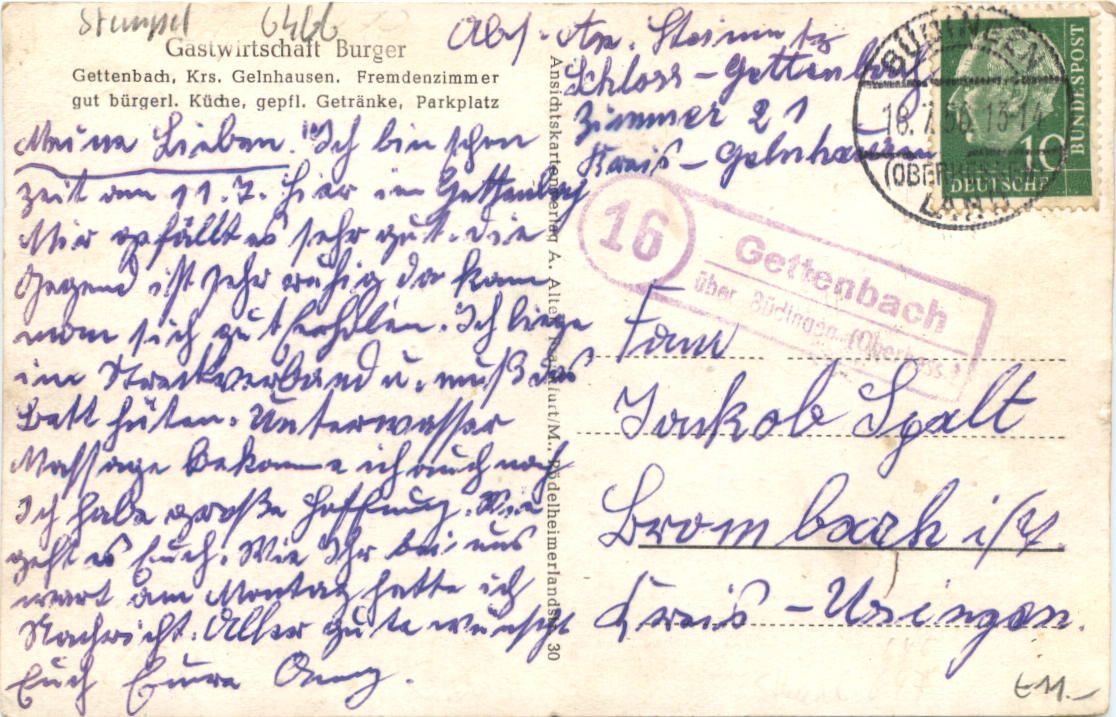 Stempel 6466
Gastwirtschaft Burger
Gettenbach, Krs. Gelnhausen. Fremdenzimmer
gut bürgerl. Küche, gepfl. Getränke, Parkplatz
Meine Lieben. Ich bin schon
zeit am 11.7. hier in Gettenbach
Mir gefällt es sehr gut. die
Gegend ist sehr ruhig da kann
man sich gut erholen. Ich liege
im Streckverband u. muß das
Bett hüten. Unterwasser
Massage bekomme ich auch noch
Ich habe große Hoffnung. Wie
geht es Euch. Wie Ihr bei uns
wart am Montag hatte ich
Nachricht. Alles gute wünscht
Euch Eure
Ansichtskartenverlag A. Alter, Frankfurt/M., Rödelheimerlandstr. 30
Abs.
Schloss - Gettenbach
Zimmer 21
Kreis - Gelnhausen
BÜDINGEN
18.7.56.13-14
(OBERHESSEN)
LAND
BUNDESPOST
10
DEUTSCHE
16
Gettenbach
über Büdingen (Oberhess.)
Jakob Spalt
Brombach i/T.
Kreis - Usingen.